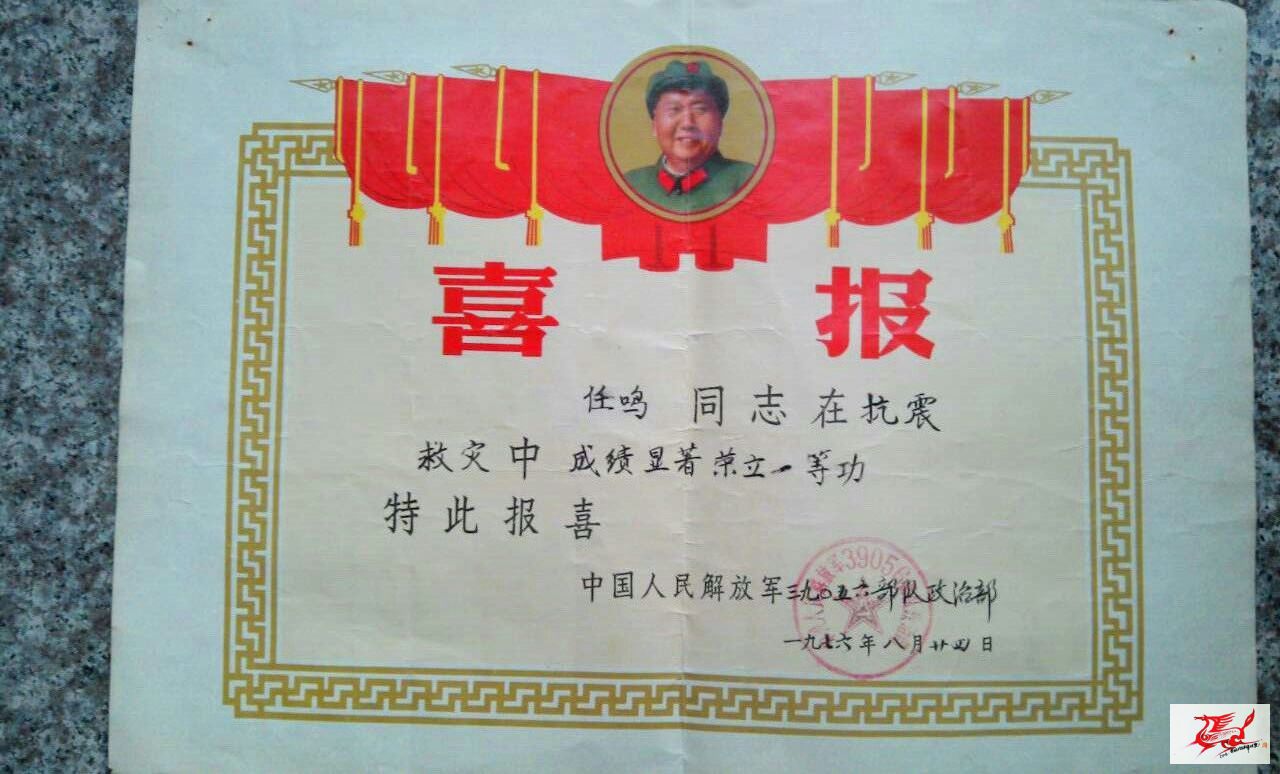 喜 报
任鸣 同志在抗震
救灾中 成绩显著荣立一等功
特此报喜
中国人民解放军三九〇五六部队政治部
一九七六年八月廿四日
39056